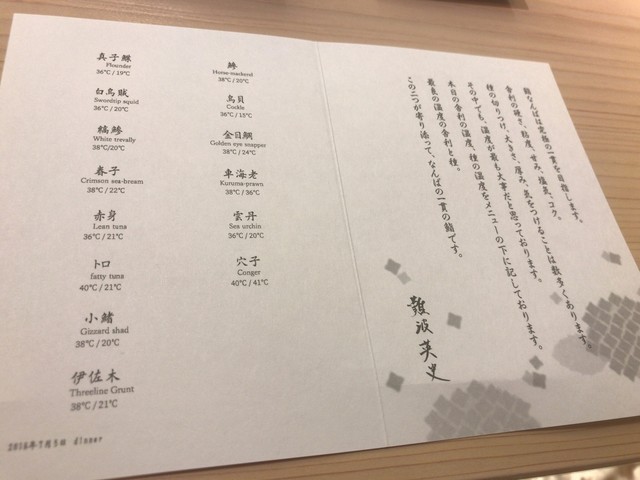 真子鰈
Flounder
36℃ / 19℃
白烏賊
Swordtip squid
36℃ / 20℃
縞鯵
White trevally
38℃/20℃
春子
Crimson sea-bream
38℃ / 22℃
赤身
Lean tuna
36℃ / 21℃
トロ
fatty tuna
40℃ / 21℃
小鰭
Gizzard shad
38℃ / 20℃
伊佐木
Threeline Grunt
38℃ / 21℃
鯵
Horse-mackerel
38℃ / 20℃
鳥貝
Cockle
36℃ / 15℃
金目鯛
Golden eye snapper
38℃ / 24℃
車海老
Kuruma-prawn
38℃ / 36℃
雲丹
Sea urchin
36℃ / 20℃
穴子
Conger
40℃ / 41℃
2018年7月5日 dinner
鮨なんばは究極の一貫を目指します。
舎利の硬さ、粘度、甘み、塩気、コク。
種の切りつけ、大きさ、厚み、気をつけることは数多くあります。
その中でも、温度が最も大事だと思っております。
本日の舎利の温度、種の温度をメニューの下に記しております。
最良の温度の舎利と種。
この二つが寄り添って、なんばの一貫の鮨です。
難波英史